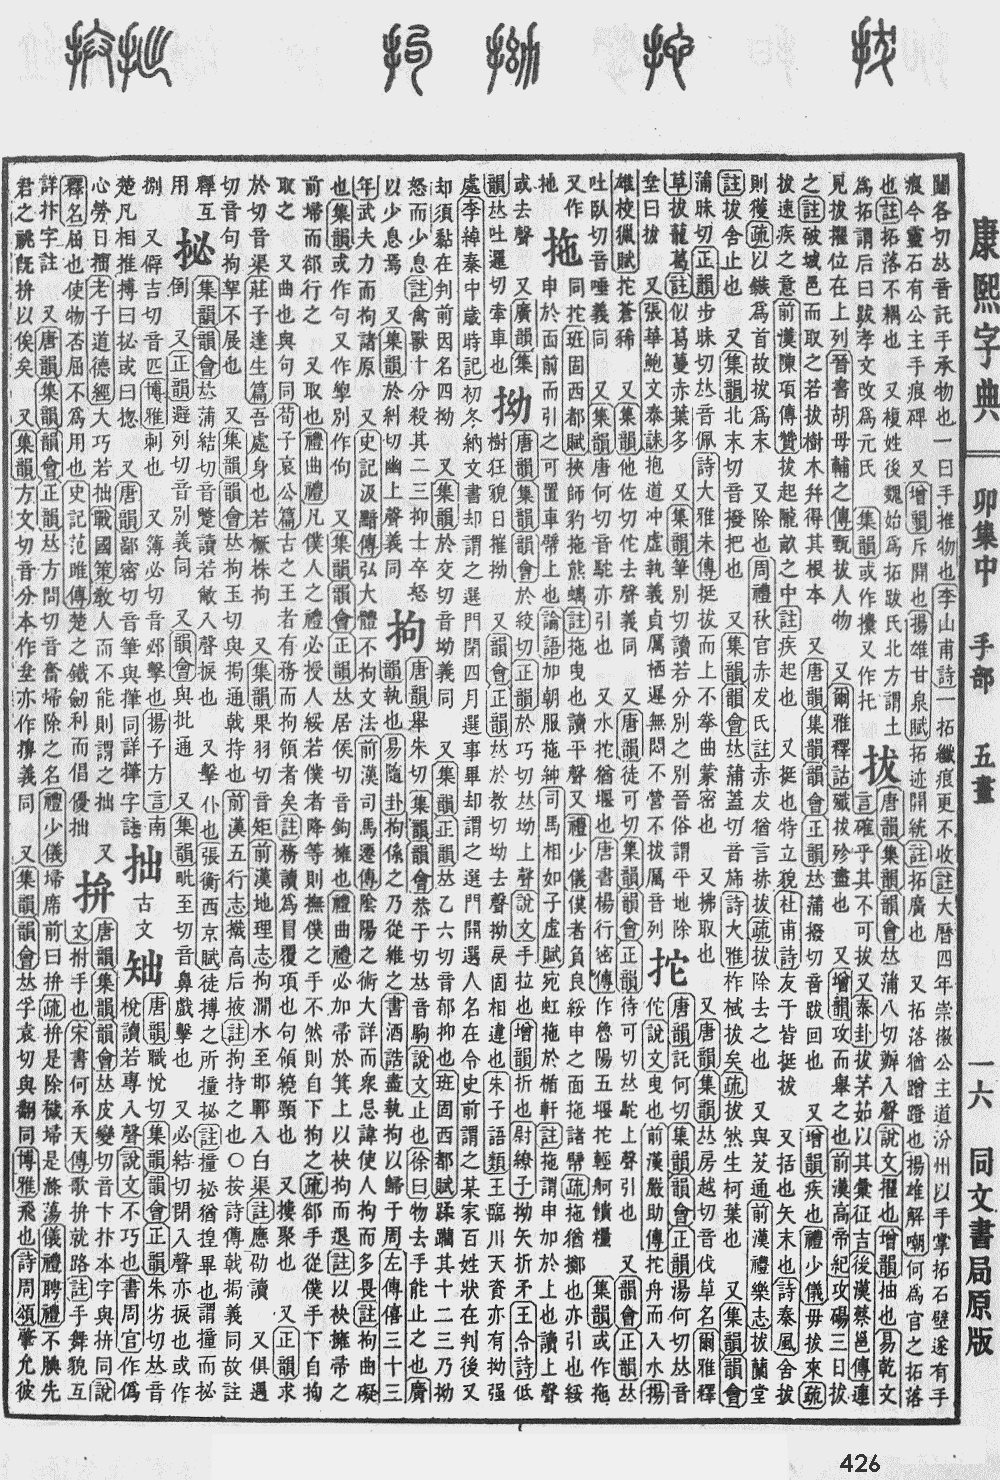 康熙字典 卯集中 手部 五畫 一六 同文書局原版
闥各切𠀤音託手承物也一曰手推物也李山甫詩一拓纖痕更不收註大曆四年崇徽公主道汾州以手掌拓石壁遂有手
痕今靈石有公主手痕碑 又增韻斥開也揚雄甘泉賦拓迹開統註拓廣也 又拓落猶蹭蹬也揚雄解嘲何爲官之拓落
也註拓落不耦也 又複姓後魏始爲拓跋氏北方謂土
爲拓謂后曰跋孝文改爲元氏 集韻或作㩴又作托
拔 唐韻集韻韻會𠀤蒲八切辦入聲說文擢也增韻抽也易乾文
言確乎其不可拔 又泰卦拔茅茹以其彙征吉後漢蔡邕傳連
見拔擢位在上列晉書胡母輔之傳甄拔人物 又爾雅釋詁殲拔殄盡也 又增韻攻而舉之也前漢高帝紀攻碭三日拔
之註破城邑而取之若拔樹木幷得其根本 又唐韻集韻韻會正韻𠀤蒲撥切音跋回也 又增韻疾也禮少儀毋拔來疏
拔速疾之意前漢陳項傳贊拔起隴畝之中註疾起也 又挺也特立貌杜甫詩友于皆挺拔 又括也矢末也詩秦風舍拔
則獲疏以鏃爲首故拔爲末 又除也周禮秋官赤犮氏註赤犮猶言捇拔疏拔除去之也 又與茇通前漢禮樂志拔蘭堂
註拔舍止也 又集韻北末切音撥把也 又集韻韻會𠀤蒲蓋切音旆詩大雅柞棫拔矣疏拔然生柯葉也 又集韻韻會
蒲昧切正韻步昧切𠀤音佩詩大雅朱傳挺拔而上不拳曲蒙密也 又拂取也 又唐韻集韻𠀤房越切音伐草名爾雅釋
草拔蘢葛註似葛蔓赤葉多 又集韻筆別切讀若分別之別晉俗謂平地除
垄曰拔 又張華鮑文泰誄抱道冲虛執義貞厲栖遲無悶不營不拔厲音列
拕 唐韻託何切集韻韻會正韻湯何切𠀤音
佗說文曳也前漢嚴助傳拕舟而入水揚
雄校獵賦拕蒼豨 又集韻他佐切佗去聲義同 又唐韻徒可切集韻韻會正韻待可切𠀤駝上聲引也 又韻會正韻𠀤
吐臥切音唾義同 又集韻唐何切音駝亦引也 又水拕猶堰也唐書楊行密傳作魯陽五堰拕輕舸饋糧 集韻或作拖
又作
拖 同拕班固西都賦挾師豹拖熊螭註拖曳也讀平聲又禮少儀僕者負良綏申之面拖諸幦疏拖猶擲也亦引也綏
申於面前而引之可置車幦上也論語加朝服拖紳司馬相如子虛賦宛虹拖於楯軒註拖謂申加於上也讀上聲
或去聲 又廣韻集
韻𠀤吐邏切牽車也
拗 唐韻集韻韻會於絞切正韻於巧切𠀤坳上聲說文手拉也增韻折也尉繚子拗矢折矛王令詩低
樹狂覘日摧拗 又韻會正韻𠀤於敎切坳去聲拗戾固相違也朱子語類王臨川天資亦有拗强
處李綽秦中歲時記初冬納文書却謂之選門閉四月選事畢却謂之選門開選人名在令史前謂之某家百姓狀在判後又
却須黏在判前因名四拗 又集韻於交切音坳義同 又集韻正韻𠀤乙六切音郁抑也班固西都賦蹂躪其十二三乃拗
怒而少息註禽獸十分殺其二三抑士卒怒
以少息焉 又集韻於糾切幽上聲義同
拘 唐韻舉朱切集韻韻會恭于切𠀤音駒說文止也徐曰物去手能止之也廣
韻執也易隨卦拘係之乃從維之書酒誥盡執拘以歸于周左傳僖三十三
年武夫力而拘諸原 又史記汲黯傳弘大體不拘文法前漢司馬遷傳陰陽之術大詳而衆忌諱使人拘而多畏註拘曲礙
也集韻或作句又作㡭別作佝 又集韻韻會正韻𠀤居侯切音鉤擁也禮曲禮必加帚於箕上以袂拘而退註以袂擁帚之
前埽而郤行之 又取也禮曲禮凡僕人之禮必授人綏若僕者降等則撫僕之手不然則自下拘之疏郤手從僕手下自拘
取之 又曲也與句同荀子哀公篇古之王者有務而拘領者矣註務讀爲冒覆項也句領繞頸也 又摟聚也 又正韻求
於切音渠莊子達生篇吾處身也若橛株拘 又集韻果羽切音矩前漢地理志拘澗水至邯鄲入白渠註應劭讀 又俱遇
切音句拘㧗不展也 又集韻韻會𠀤拘玉切與挶通戟持也前漢五行志摡高后掖註拘持之也○按詩傳戟挶義同故註
釋互
用
柲 集韻韻會𠀤蒲結切音蹩讀若敝入聲捩也 又擊仆也張衡西京賦徒搏之所撞柲註撞柲猶揘畢也謂撞而柲
倒 又正韻避列切音別義同 又韻會與批通 又集韻毗至切音鼻戲擊也 又必結切閉入聲亦捩也或作
捌 又僻吉切音匹博雅刺也 又簿必切音邲擊也揚子方言南
楚凡相推搏曰柲或曰揔 又唐韻鄙密切音筆與㩼同詳㩼字註
拙 古文
䂐 唐韻職悅切集韻韻會正韻朱劣切𠀤音
梲讀若專入聲說文不巧也書周官作僞
心勞日拙老子道德經大巧若拙戰國策敎人而不能則謂之拙 又
釋名屈也使物否屈不爲用也史記范雎傳楚之鐵劒利而倡優拙
拚 唐韻集韻韻會𠀤皮變切音卞抃本字與拚同說
文拊手也宋書何承天傳歌拚就路註手舞貌互
詳抃字註 又唐韻集韻韻會正韻𠀤方問切音奮埽除之名禮少儀埽席前曰拚疏拚是除穢埽是滌蕩儀禮聘禮不腆先
君之祧旣拚以俟矣 又集韻方文切音分本作坌亦作攩義同 又集韻韻會𠀤孚袁切與翻同博雅飛也詩周頌肇允彼
426